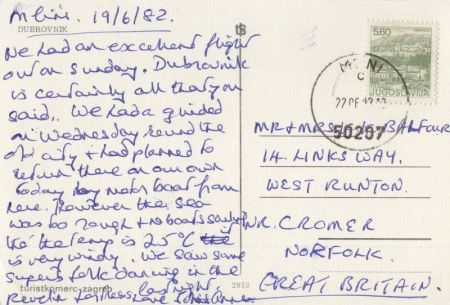 Mlini. 19/6/82.
DUBROVNIK
We had an excellent flight
out on Sunday. Dubrovnik
is certainly all that you
said. We had a guided
on Wednesday round the
old city & had planned to
return there on our own
today by motor boat from
here. However the sea
was too rough & no boats
tho' the temp is 25°C
is very windy. We saw some
superb folk dancing in the
Revelin fortress last night.
Love
turistkomerc-zagreb
2913
5.60
JUGOSLAVIJA
MLINI
50207
MR & MRS BALFOUR
14. LINKS WAY.
WEST RUNTON.
NR. CROMER
NORFOLK.
GREAT BRITAIN.